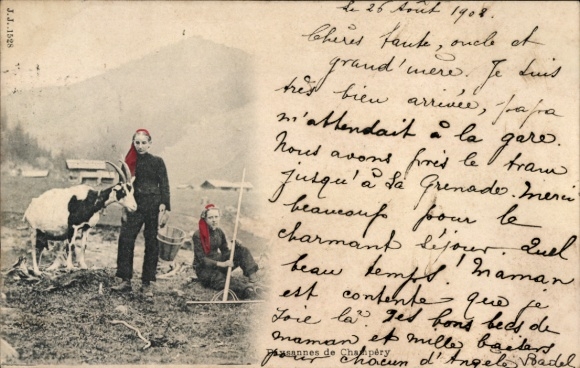 J.J. 1528
Le 26 Août 1902.
Chères tante, oncle et
grand'mère. Je suis
très bien arrivée, papa
m'attendait à la gare.
Nous avons pris le tram
jusqu'à La Grenade. Merci
beaucoup pour le
charmant séjour. Quel
beau temps! Maman
est contente que je
soie là. Des bons becs de
maman et mille baisers
pour chacun d'Angèle Badel
Paysannes de Champéry